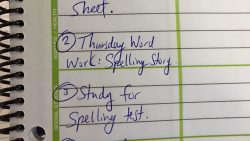 Sheet.
② Thursday Word
Work: Spelling Story.
③ Study for
Spelling test.